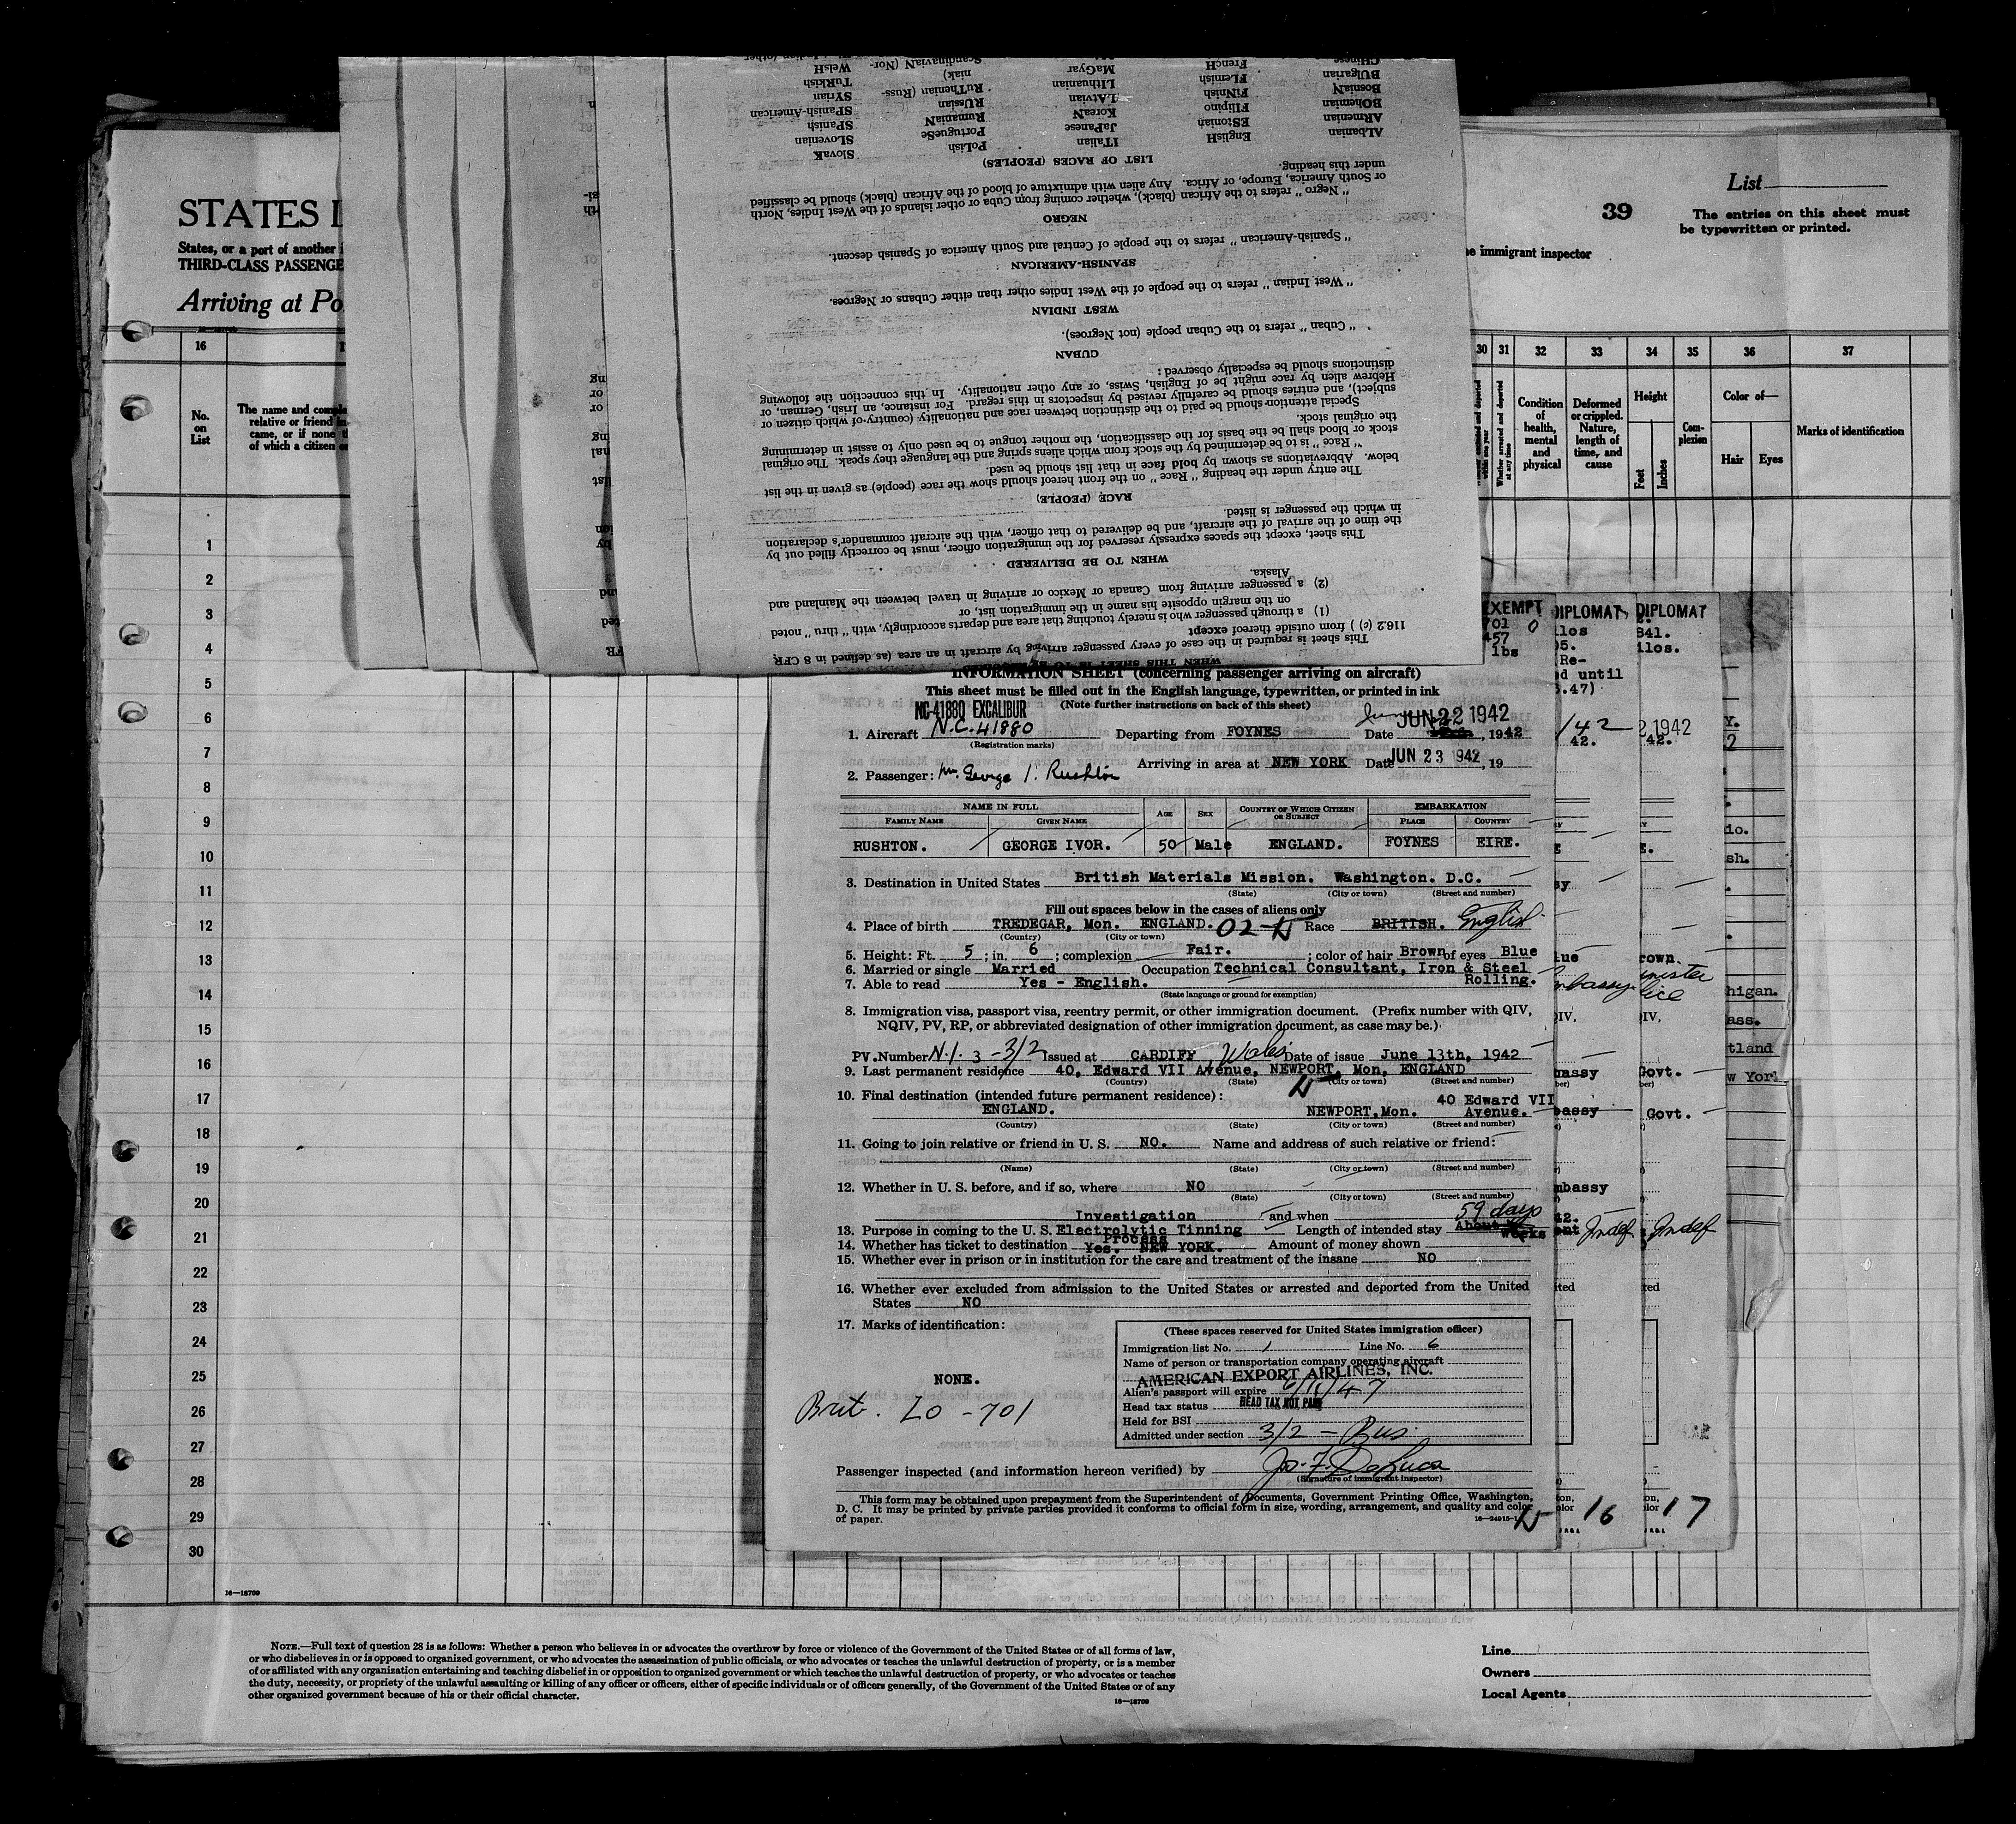 STATES
States, or a port of another
THIRD-CLASS PASSENGE
Arriving at Po
16
No.
on
List
The name and
relative or friend
came, or if none
of which a citizen
1
2
3
4
5
6
7
8
9
10
11
12
13
14
15
16
17
18
19
20
21
22
23
24
25
26
27
28
29
30
16—18709
List
39
The entries on this sheet must
be typewritten or printed.
immigrant inspector
30 31 32 33 34 35 36 37
Whether arrested and deported at any time
Condition of health, mental and physical
Deformed or crippled. Nature, length of time, and cause
Height
Feet Inches
Com-
plexion
Color of—
Hair Eyes
Marks of identification
WHEN THIS SHEET IS
This sheet is required in the case of every passenger arriving by aircraft in an area (as defined in 8 CFR
116.2 (c) ) from outside thereof except
(1) a through passenger who is merely touching that area and departs accordingly, with "thru" noted
on the margin opposite his name in the immigration list, or
(2) a passenger arriving from Canada or Mexico or arriving in travel between the Mainland and
Alaska.
WHEN TO BE DELIVERED
This sheet, except the spaces expressly reserved for the immigration officer, must be correctly filled out by
the time of the arrival of the aircraft, and be delivered to that officer, with the aircraft commander's declaration
in which the passenger is listed.
RACE (PEOPLE)
The entry under the heading "Race" on the front hereof should show the race (people) as given in the list
below. Abbreviations as shown by bold face in that list should be used.
"Race" is to be determined by the stock from which aliens spring and the language they speak. The original
stock or blood shall be the basis for the classification, the mother tongue to be used only to assist in determining
the original stock.
Special attention should be paid to the distinction between race and nationality (country of which citizen or
subject), and entries should be carefully revised by inspectors in this regard. For instance, an Irish, German, or
Hebrew alien by race might be of English, Swiss, or any other nationality. In this connection the following
distinctions should be especially observed:
CUBAN
"Cuban" refers to the Cuban people (not Negroes).
WEST INDIAN
"West Indian" refers to the people of the West Indies other than either Cubans or Negroes.
SPANISH-AMERICAN
"Spanish-American" refers to the people of Central and South America of Spanish descent.
NEGRO
"Negro" refers to the African (black), whether coming from Cuba or other islands of the West Indies, North
or South America, Europe, or Africa. Any alien with admixture of blood of the African (black) should be classified
under this heading.
LIST OF RACES (PEOPLES)
ALbanian EngliSH ITalian PoLish SlovaK
ARmenian EStonian JaPanese PortugueSe SLovenian
BOhemian FIlipino KoreaN RumaniaN SPanish
BosniaN FiNnish LAtvian RUssian SPanish-American
BUlgarian FLemish LIthuanian RuThenian (Russ- SYrian
CHinese FrencH MaGyar niak) TuRkish
ScandinaviaN (Nor- WelsH
INFORMATION SHEET (concerning passenger arriving on aircraft)
This sheet must be filled out in the English language, typewritten, or printed in ink
NC-41880 EXCALIBUR (Note further instructions on back of this sheet)
1. Aircraft N.C. 41880 Departing from FOYNES Date JUN 22 1942, 1942
(Registration marks)
Arriving in area at NEW YORK Date JUN 23 1942, 19
2. Passenger: Mr. George I. Rushton
NAME IN FULL AGE SEX COUNTRY OF WHICH CITIZEN OR SUBJECT EMBARKATION
FAMILY NAME GIVEN NAME PLACE COUNTRY
RUSHTON. GEORGE IVOR. 50 Male ENGLAND. FOYNES EIRE.
3. Destination in United States British Materials Mission. Washington. D.C.
(State) (City or town) (Street and number)
Fill out spaces below in the cases of aliens only
4. Place of birth TREDEGAR, Mon. ENGLAND. 02- Race BRITISH. English
(Country) (City or town)
5. Height: Ft. 5; in. 6; complexion Fair.; color of hair Brown of eyes Blue
6. Married or single Married Occupation Technical Consultant, Iron & Steel
Rolling.
7. Able to read Yes - English.
(State language or ground for exemption)
8. Immigration visa, passport visa, reentry permit, or other immigration document. (Prefix number with QIV,
NQIV, PV, RP, or abbreviated designation of other immigration document, as case may be.)
PV. Number N.I. 3 - 3/2 Issued at CARDIFF, Wales Date of issue June 13th, 1942
9. Last permanent residence 40, Edward VII Avenue, NEWPORT, Mon, ENGLAND
(Country) (State) (City or town) (Street and number)
10. Final destination (intended future permanent residence): 40 Edward VII
ENGLAND. NEWPORT, Mon. Avenue.
(Country) (State) (City or town) (Street and number)
11. Going to join relative or friend in U. S. NO. Name and address of such relative or friend:
(Name) (State) (City or town) (Street and number)
12. Whether in U. S. before, and if so, where NO
(State) (City or town) (Street and number)
Investigation and when 59 days
13. Purpose in coming to the U. S. Electrolytic Tinning Length of intended stay About Weeks
Process
14. Whether has ticket to destination Yes. NEW YORK. Amount of money shown
15. Whether ever in prison or in institution for the care and treatment of the insane NO
16. Whether ever excluded from admission to the United States or arrested and deported from the United
States NO
17. Marks of identification:
NONE.
Brit. LO - 701
(These spaces reserved for United States immigration officer)
Immigration list No. 1 Line No. 6
Name of person or transportation company operating aircraft
AMERICAN EXPORT AIRLINES, INC.
Alien's passport will expire 6/11/47
Head tax status HEAD TAX NOT PAID
Held for BSI
Admitted under section 3/2 - Bus.
Passenger inspected (and information hereon verified) by Jo. F. DeLuca
(Signature of immigrant inspector)
This form may be obtained upon prepayment from the Superintendent of Documents, Government Printing Office, Washington,
D. C. It may be printed by private parties provided it conforms to official form in size, wording, arrangement, and quality and color
of paper.
16—24915-1
EXEMPT DIPLOMAT DIPLOMAT
701 0
457
lbs
ilos
Re-
d until
841.
ilos.
/42 2 1942
42. 42.
rown.
Embassy
QIV. QIV.
higan.
ass.
tland
w York
bassy Govt.
bassy Govt.
mbassy
Indef Indef
16 17
NOTE.—Full text of question 28 is as follows: Whether a person who believes in or advocates the overthrow by force or violence of the Government of the United States or of all forms of law,
or who disbelieves in or is opposed to organized government, or who advocates the assassination of public officials, or who advocates or teaches the unlawful destruction of property, or is a member
of or affiliated with any organization entertaining and teaching disbelief in or opposition to organized government or which teaches the unlawful destruction of property, or who advocates or teaches
the duty, necessity, or propriety of the unlawful assaulting or killing of any officer or officers, either of specific individuals or of officers generally, of the Government of the United States or of any
other organized government because of his or their official character.
16—18709
Line
Owners
Local Agents